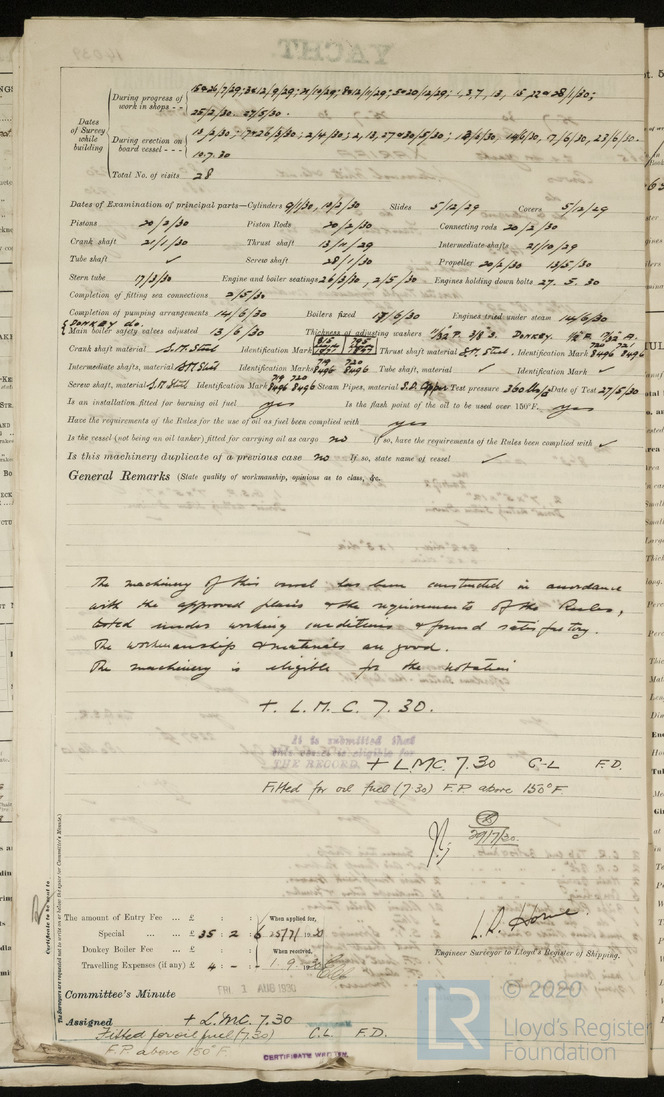 YACHT.
Dates of Survey while building
During progress of work in shops - -
25/2/30. 27/5/30.
During erection on board vessel - - -
19.7.30
Total No. of visits 28
Dates of Examination of principal parts—Cylinders 9/1/30, 19/2/30 Slides 5/12/29 Covers 5/12/29
Pistons 20/2/30 Piston Rods 20/2/30 Connecting rods 20/2/30
Crank shaft 21/1/30 Thrust shaft 13/11/29 Intermediate shafts 21/10/29
Tube shaft ✓ Screw shaft 28/1/30 Propeller 20/2/30 13/5/30
Stern tube 17/3/30 Engine and boiler seatings 26/3/30, 2/5/30 Engines holding down bolts 27. 5. 30
Completion of fitting sea connections 2/5/30
Completion of pumping arrangements 14/6/30 Boilers fixed 18/6/30 Engines tried under steam 14/6/30
& DONKEY do.
Main boiler safety valves adjusted 13/6/30 Thickness of adjusting washers DONKEY.
Crank shaft material S.M. Steel Identification Mark Thrust shaft material S.M. Steel. Identification Mark 8496 8496
Intermediate shafts, material S.M Steel Identification Marks 719 720 8496 8496 Tube shaft, material ✓ Identification Mark ✓
Screw shaft, material S.M Steel Identification Mark 719 720 8496 8496 Steam Pipes, material S.D. Copper Test pressure 360 lbs Date of Test 27/5/30
Is an installation fitted for burning oil fuel yes Is the flash point of the oil to be used over 150°F. yes
Have the requirements of the Rules for the use of oil as fuel been complied with yes
Is the vessel (not being an oil tanker) fitted for carrying oil as cargo no If so, have the requirements of the Rules been complied with ✓
Is this machinery duplicate of a previous case no If so, state name of vessel ✓
General Remarks (State quality of workmanship, opinions as to class, &c.
The machinery of this vessel has been constructed in accordance
with the approved plans & the requirements of the Rules,
tested under working conditions & found satisfactory.
The workmanship & materials are good.
The machinery is eligible for the notation
+ L. M. C. 7. 30.
It is submitted that
this vessel is eligible for
THE RECORD. + LMC. 7.30 C-L F.D.
Fitted for oil fuel (7.30) F.P. above 150°F.
30/7/30.
The amount of Entry Fee ... £ : : When applied for,
Special ... ... £ 35 : 2 : 6 15/7/1930
Donkey Boiler Fee ... £ : : When received,
Travelling Expenses (if any) £ 4 : - : 1.9.1930
L. D. Horne
Engineer Surveyor to Lloyd's Register of Shipping.
Committee's Minute
FRI 1 AUG 1930
Assigned + L.M.C. 7.30
Fitted for oil fuel (7.30) C.L. F.D.
F.P. above 150°F.
CERTIFICATE WRITTEN
Certificate to be sent to
The Surveyors are requested not to write on or below the space for Committee's Minute.
LR
© 2020
Lloyd's Register
Foundation